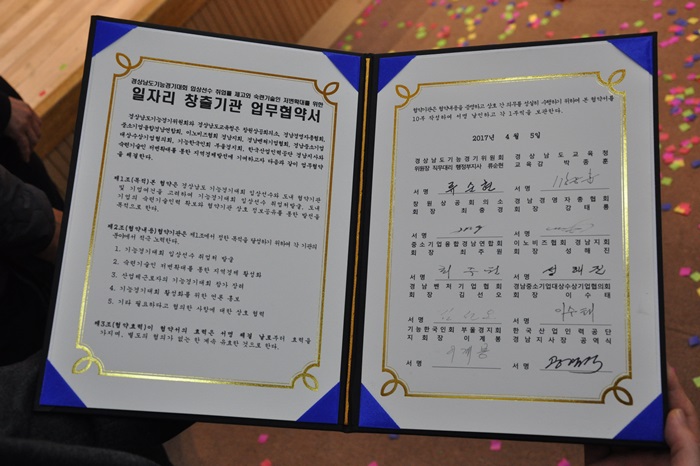 경상남도기능경기대회 입상선수 취업률 제고와 숙련기술인 저변확대를 위한
일자리 창출기관 업무협약서
경상남도기능경기위원회와 경상남도교육청은 창원상공회의소, 경남경영자총협회,
중소기업융합경남연합회, 이노비즈협회 경남지회, 경남벤처기업협회, 경남중소기업
대상수상기업협의회, 기능한국인회 부울경지회, 한국산업인력공단 경남지사와
숙련기술인 저변확대를 통한 지역경제발전에 기여하고자 다음과 같이 업무협약
을 체결한다.
제1조(목적)본 협약은 경상남도 기능경기대회 입상선수와 도내 협약기관
및 기업여건을 고려하여 기능경기대회 입상선수 취업처발굴, 도내
기업의 숙련기술인력 확보와 협약기관 상호 정보공유를 통한 발전을
목적으로 한다.
제2조(협약내용)협약기관은 제1조에서 정한 목적을 달성하기 위하여 각 기관의
분야에서 적극 노력한다.
1. 기능경기대회 입상선수 취업처 발굴
2. 숙련기술인 저변확대를 통한 지역경제 활성화
3. 산업체근로자의 기능경기대회 참가 장려
4. 기능경기대회 활성화를 위한 언론 홍보
5. 기타 필요하다고 협의한 사항에 대한 상호 협력
제3조(협약효력)이 협약서의 효력은 서명 체결 날로부터 효력을
가지며, 별도의 협의가 없는 한 계속 유효한 것으로 한다.
협약기관은 협약내용을 증명하고 상호 간 의무를 성실히 수행하기 위하여 본 협약서를
10부 작성하여 서명 날인하고 각 1부씩을 보관한다.
2017년 4월 5일
경상남도기능경기위원회 경상남도교육청
위원장 직무대리 행정부지사 류순현 교육감 박종훈
서명 류순현 서명
창원상공회의소 경남경영자총협회
회장 최충경 회장 강태룡
서명 서명
중소기업융합경남연합회 이노비즈협회 경남지회
회장 최주원 회장 성해진
서명 최주원 서명 성해진
경남벤처기업협회 경남중소기업대상수상기업협의회
회장 김선오 회장 이수태
서명 김선오 서명 이수태
기능한국인회 부울경지회 한국산업인력공단
지회장 이계봉 경남지사장 공역식
서명 이계봉 서명